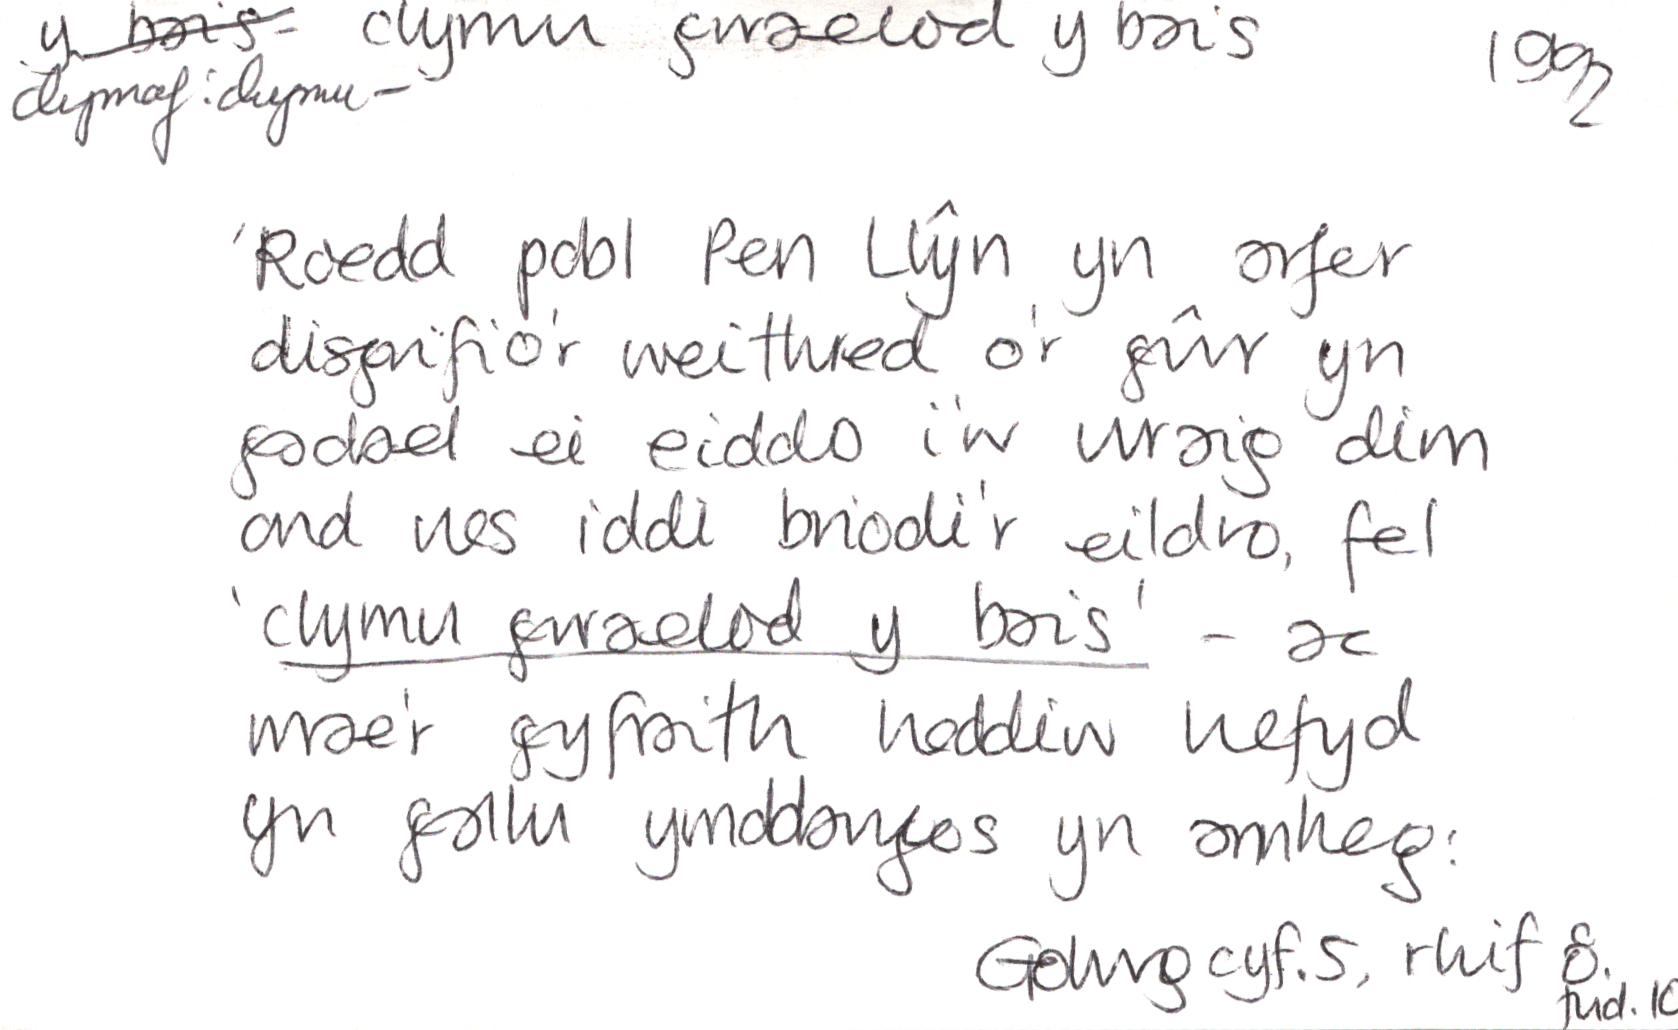 y bais clymu gwaelod y bais 1992
clymaf: clymu -
'Roedd pobl Pen Llŷn yn arfer
disgrifio'r weithred o'r gŵr yn
gadael ei eiddo i'w wraig dim
ond nes iddi briodi'r eildro, fel
'clymu gwaelod y bais' - ac
mae'r gyfraith heddiw hefyd
yn gallu ymddangos yn amheg:
Golwg cyf. 5, rhif 8.
tud. 10